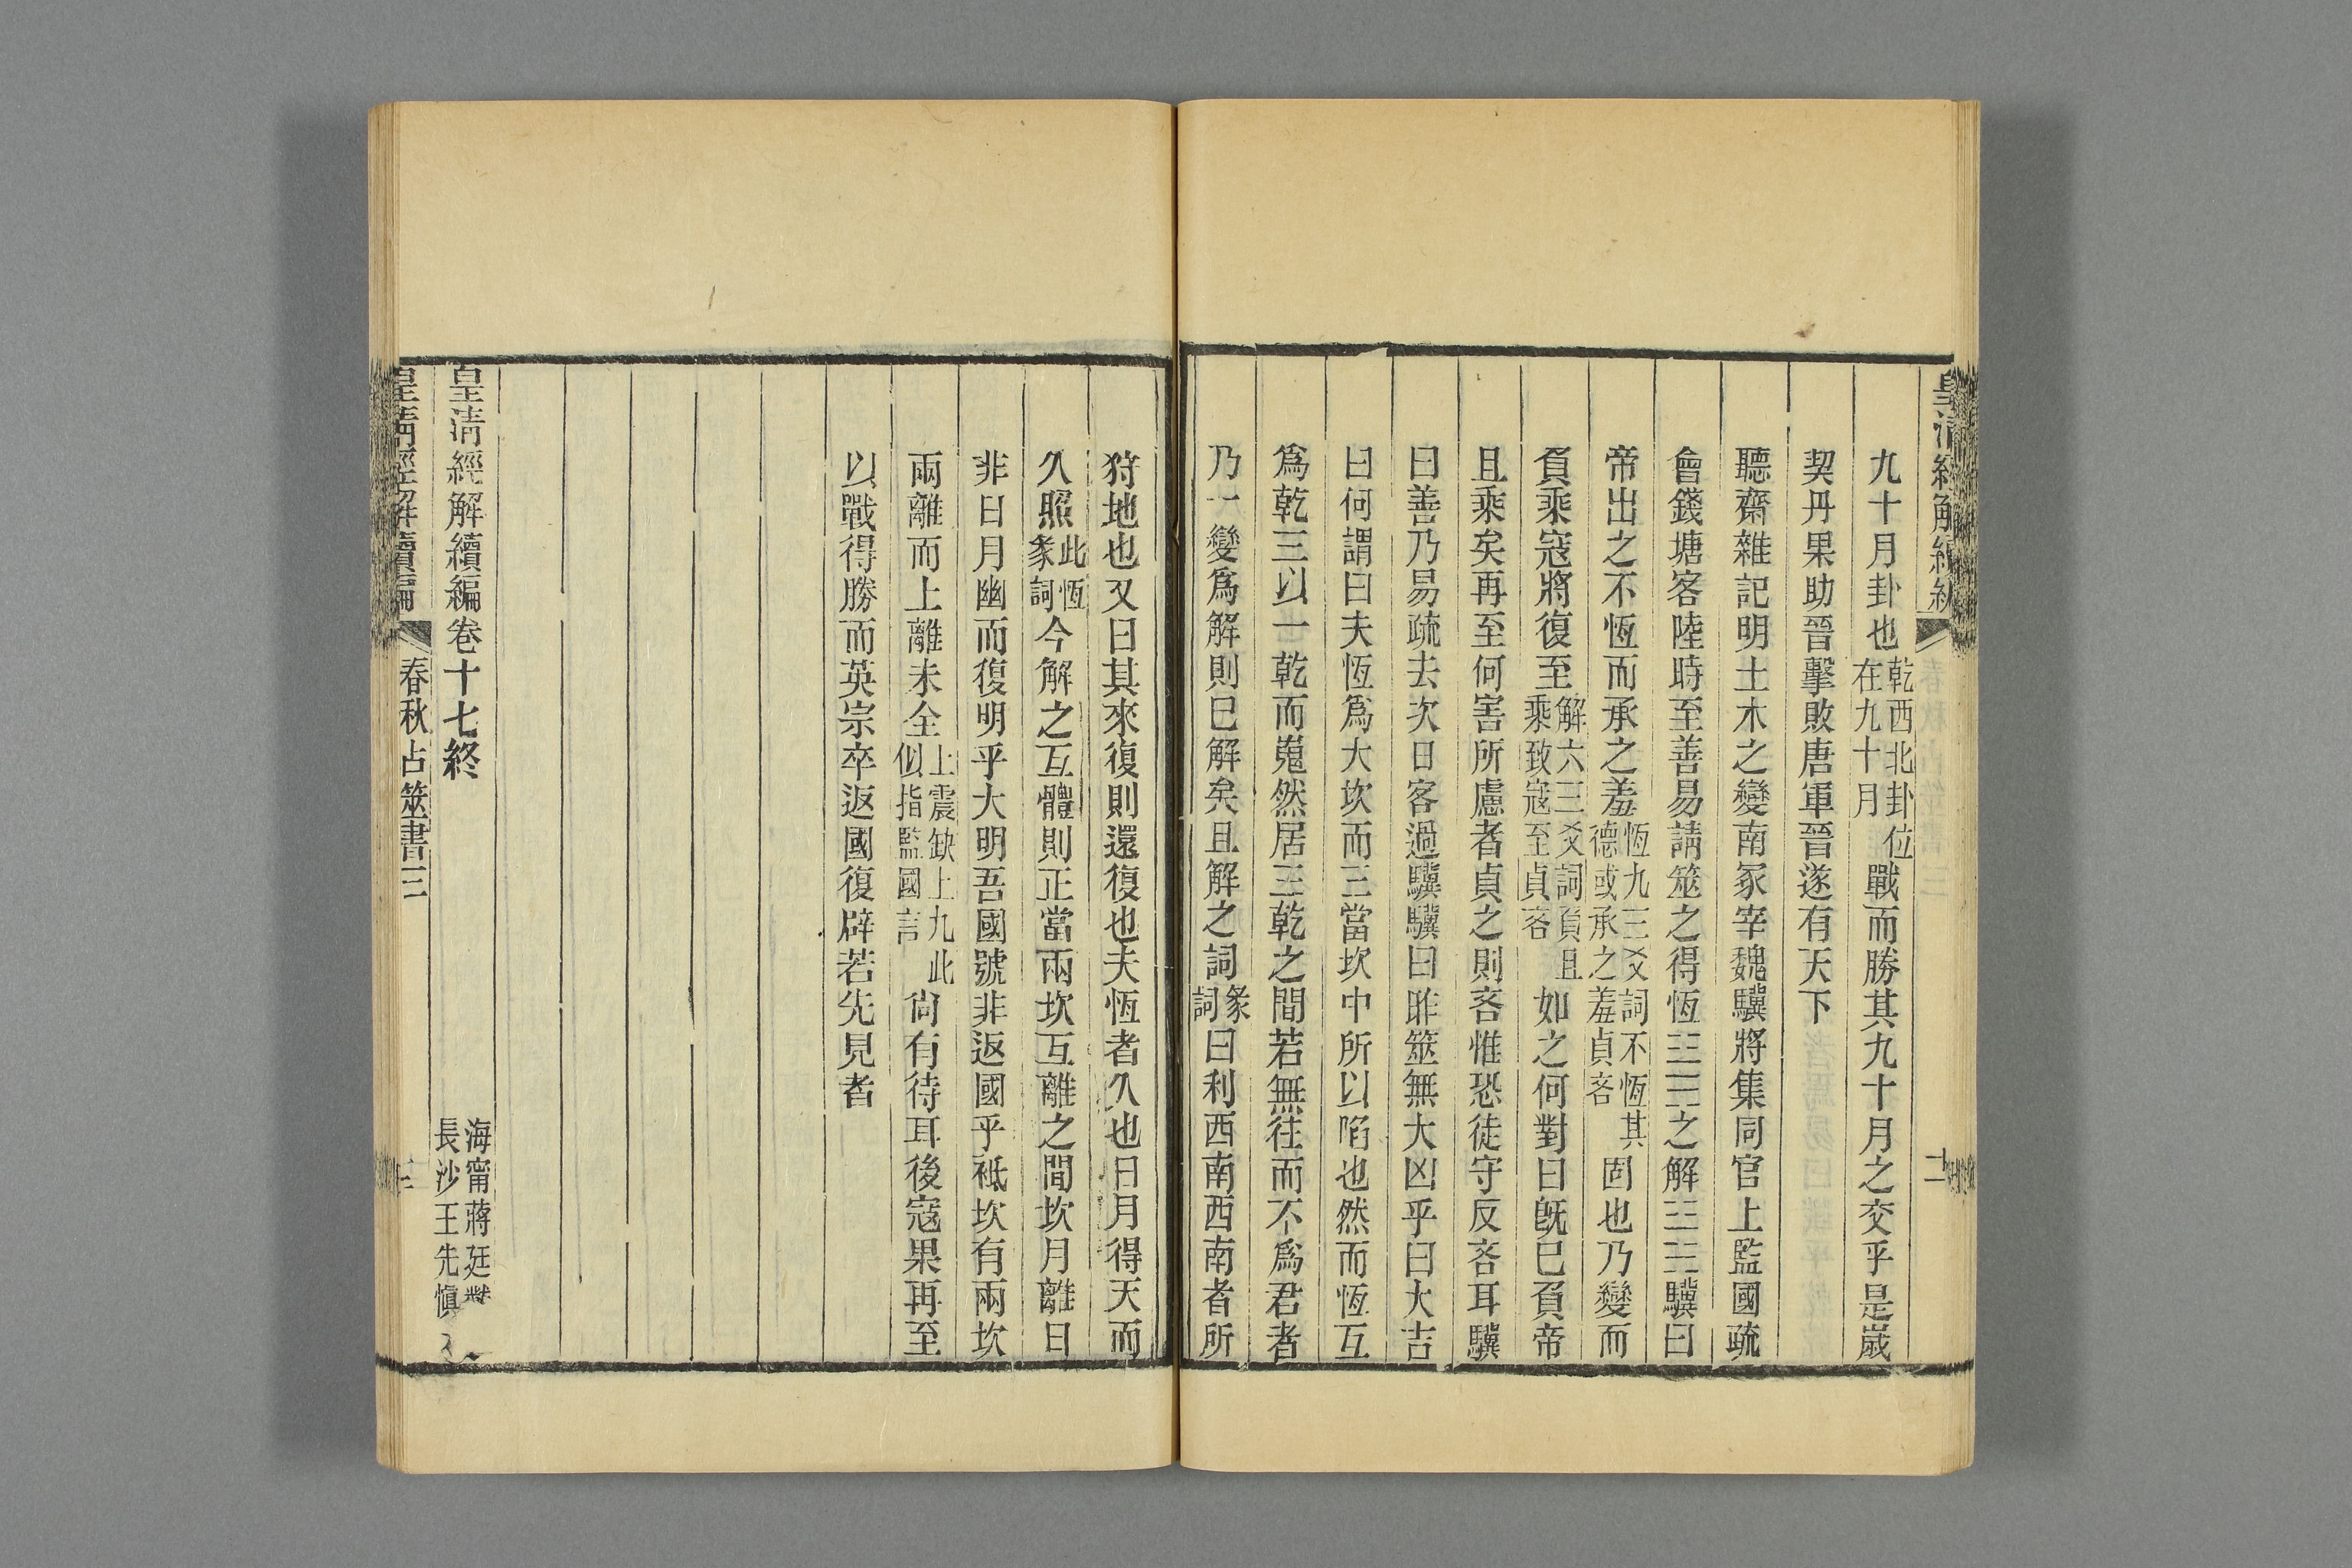 九十月卦也乾西北卦位在九十月戰而勝其九十月之交乎是歲
契丹果助晉擊敗唐軍晉遂有天下
聽齋雜記明土木之變南冢宰魏驥將集同官上監國疏
會錢塘客陸時至善易請筮之得恆䷟之解䷧驥曰
帝出之不恆而承之羞恆九三爻詞不恆其德或承之羞貞吝固也乃變而
負乘寇將復至解六三爻詞負且乘致寇至貞吝如之何對曰旣巳負帝
且乘矣再至何害所慮者貞之則吝惟恐徒守反吝耳驥
曰善乃易疏去次日客過驥驥曰昨筮無大凶乎曰大吉
曰何謂曰夫恆爲大坎而三當坎中所以陷也然而恆互
爲乾三以一乾而嵬然居三乾之間若無往而不爲君者
乃一變爲解則巳解矣且解之詞彖詞曰利西南西南者所
狩地也又曰其來復則還復也夫恆者久也日月得天而
久照此恆彖詞今解之互體則正當兩坎互離之間坎月離日
非日月幽而復明乎大明吾國號非返國乎袛坎有兩坎
兩離而上離未全上震缺上九此似指監國言尙有待耳後寇果再至
以戰得勝而英宗卒返國復辟若先見者
皇淸經解續編卷十七終
海甯蔣廷黻
長沙王先愼
皇淸經解續編 春秋占筮書三